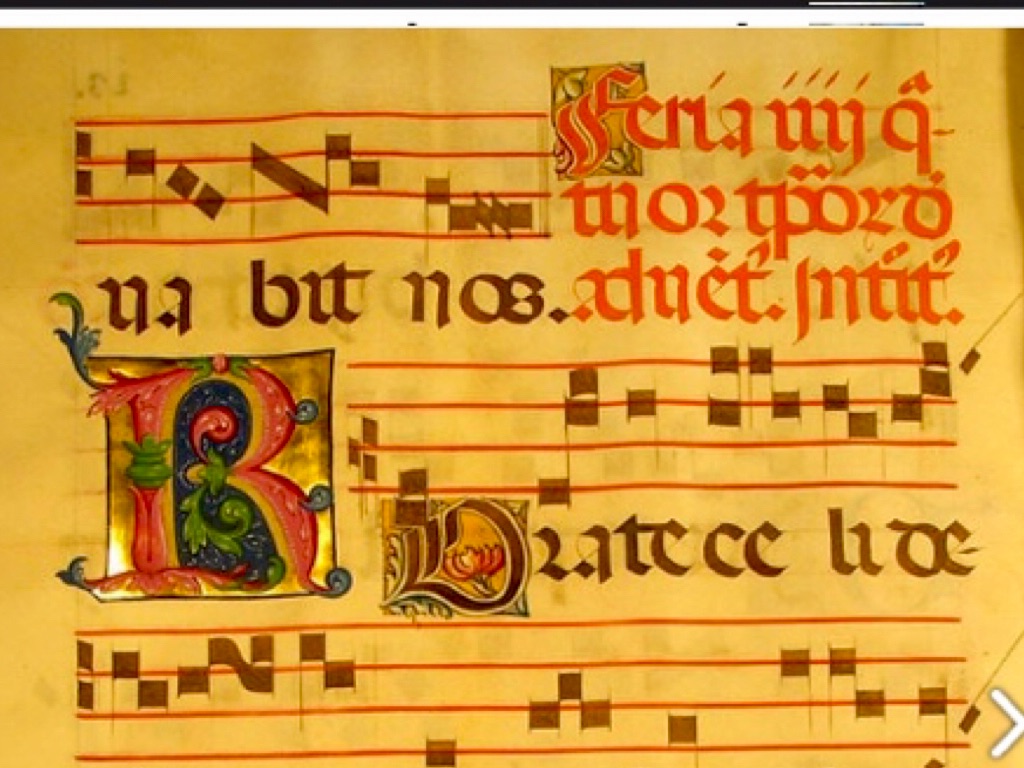 Feria iiij q̃-
tuor tp̃orũ
na bit nos. aduẽt. Intĩt.
R Orate ce li de-